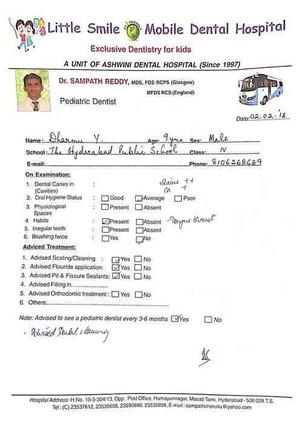 Little Smile Mobile Dental Hospital
Exclusive Dentistry for kids
A UNIT OF ASHWINI DENTAL HOSPITAL (Since 1997)
Dr. SAMPATH REDDY, MDS, FDS RCPS (Glasgow)
MFDS RCS (England)
Pediatric Dentist
Date: 02.02.16
Name: V. Age: 9 yrs Sex: Male
School: The Hyderabad Public School Class: IV
E-mail: Phone: 8106268689
On Examination:
1. Dental Caries in (Cavities)
2. Oral Hygiene Status : Good Average Poor
3. Physiological Spaces : Present Absent
4. Habits : Present Absent Tongue thrust
5. Irregular teeth : Present Absent
6. Brushing twice : Yes No
Adviced Treatment:
1. Advised Scaling/Cleaning : Yes No
2. Advised Flouride application : Yes No
3. Advised Pit & Fissure Sealants : Yes No
4. Advised Filling in
5. Advised Orthodontic treatment : Yes No
6. Others:
Note: Advised to see a pediatric dentist every 3-6 months Yes No
Advised Dental cleaning
Hospital Address: H.No. 10-3-304/13, Opp: Post Office, Humayunnagar, Masab Tank, Hyderabad - 500 028 T.S.
Tel : (C) 23537612, 23535656, 23590690, 23535858, E-mail : sampathcheruku@yahoo.com